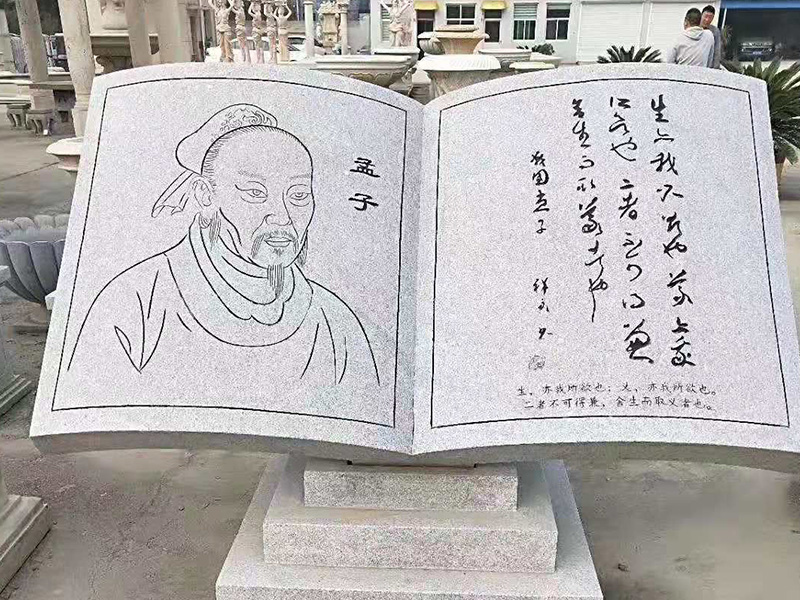 孟子
生亦我所欲也義亦我
所欲也二者不可得兼
舍生而取義者也
战国孟子
生，亦我所欲也；义，亦我所欲也。
二者不可得兼，舍生而取义者也。